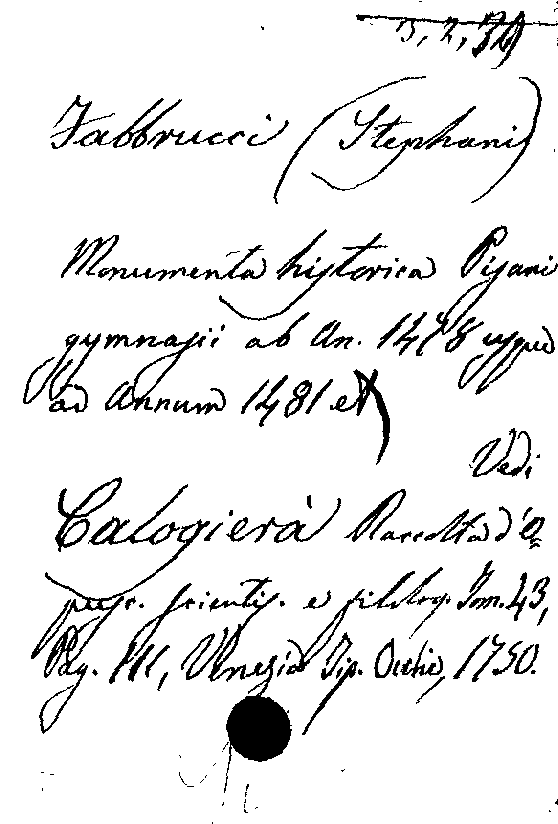 3, 2, 39
Fabbrucci (Stephani)
Monumenta historica Pisani
gymnasii ab An. 1478 usque
ad Annum 1481 et
Vedi
Calogierà Raccolta d'O=
pusc. scientif. e filolog. Tom. 43,
Pag. 111, Venezia Tip. Occhi, 1750.